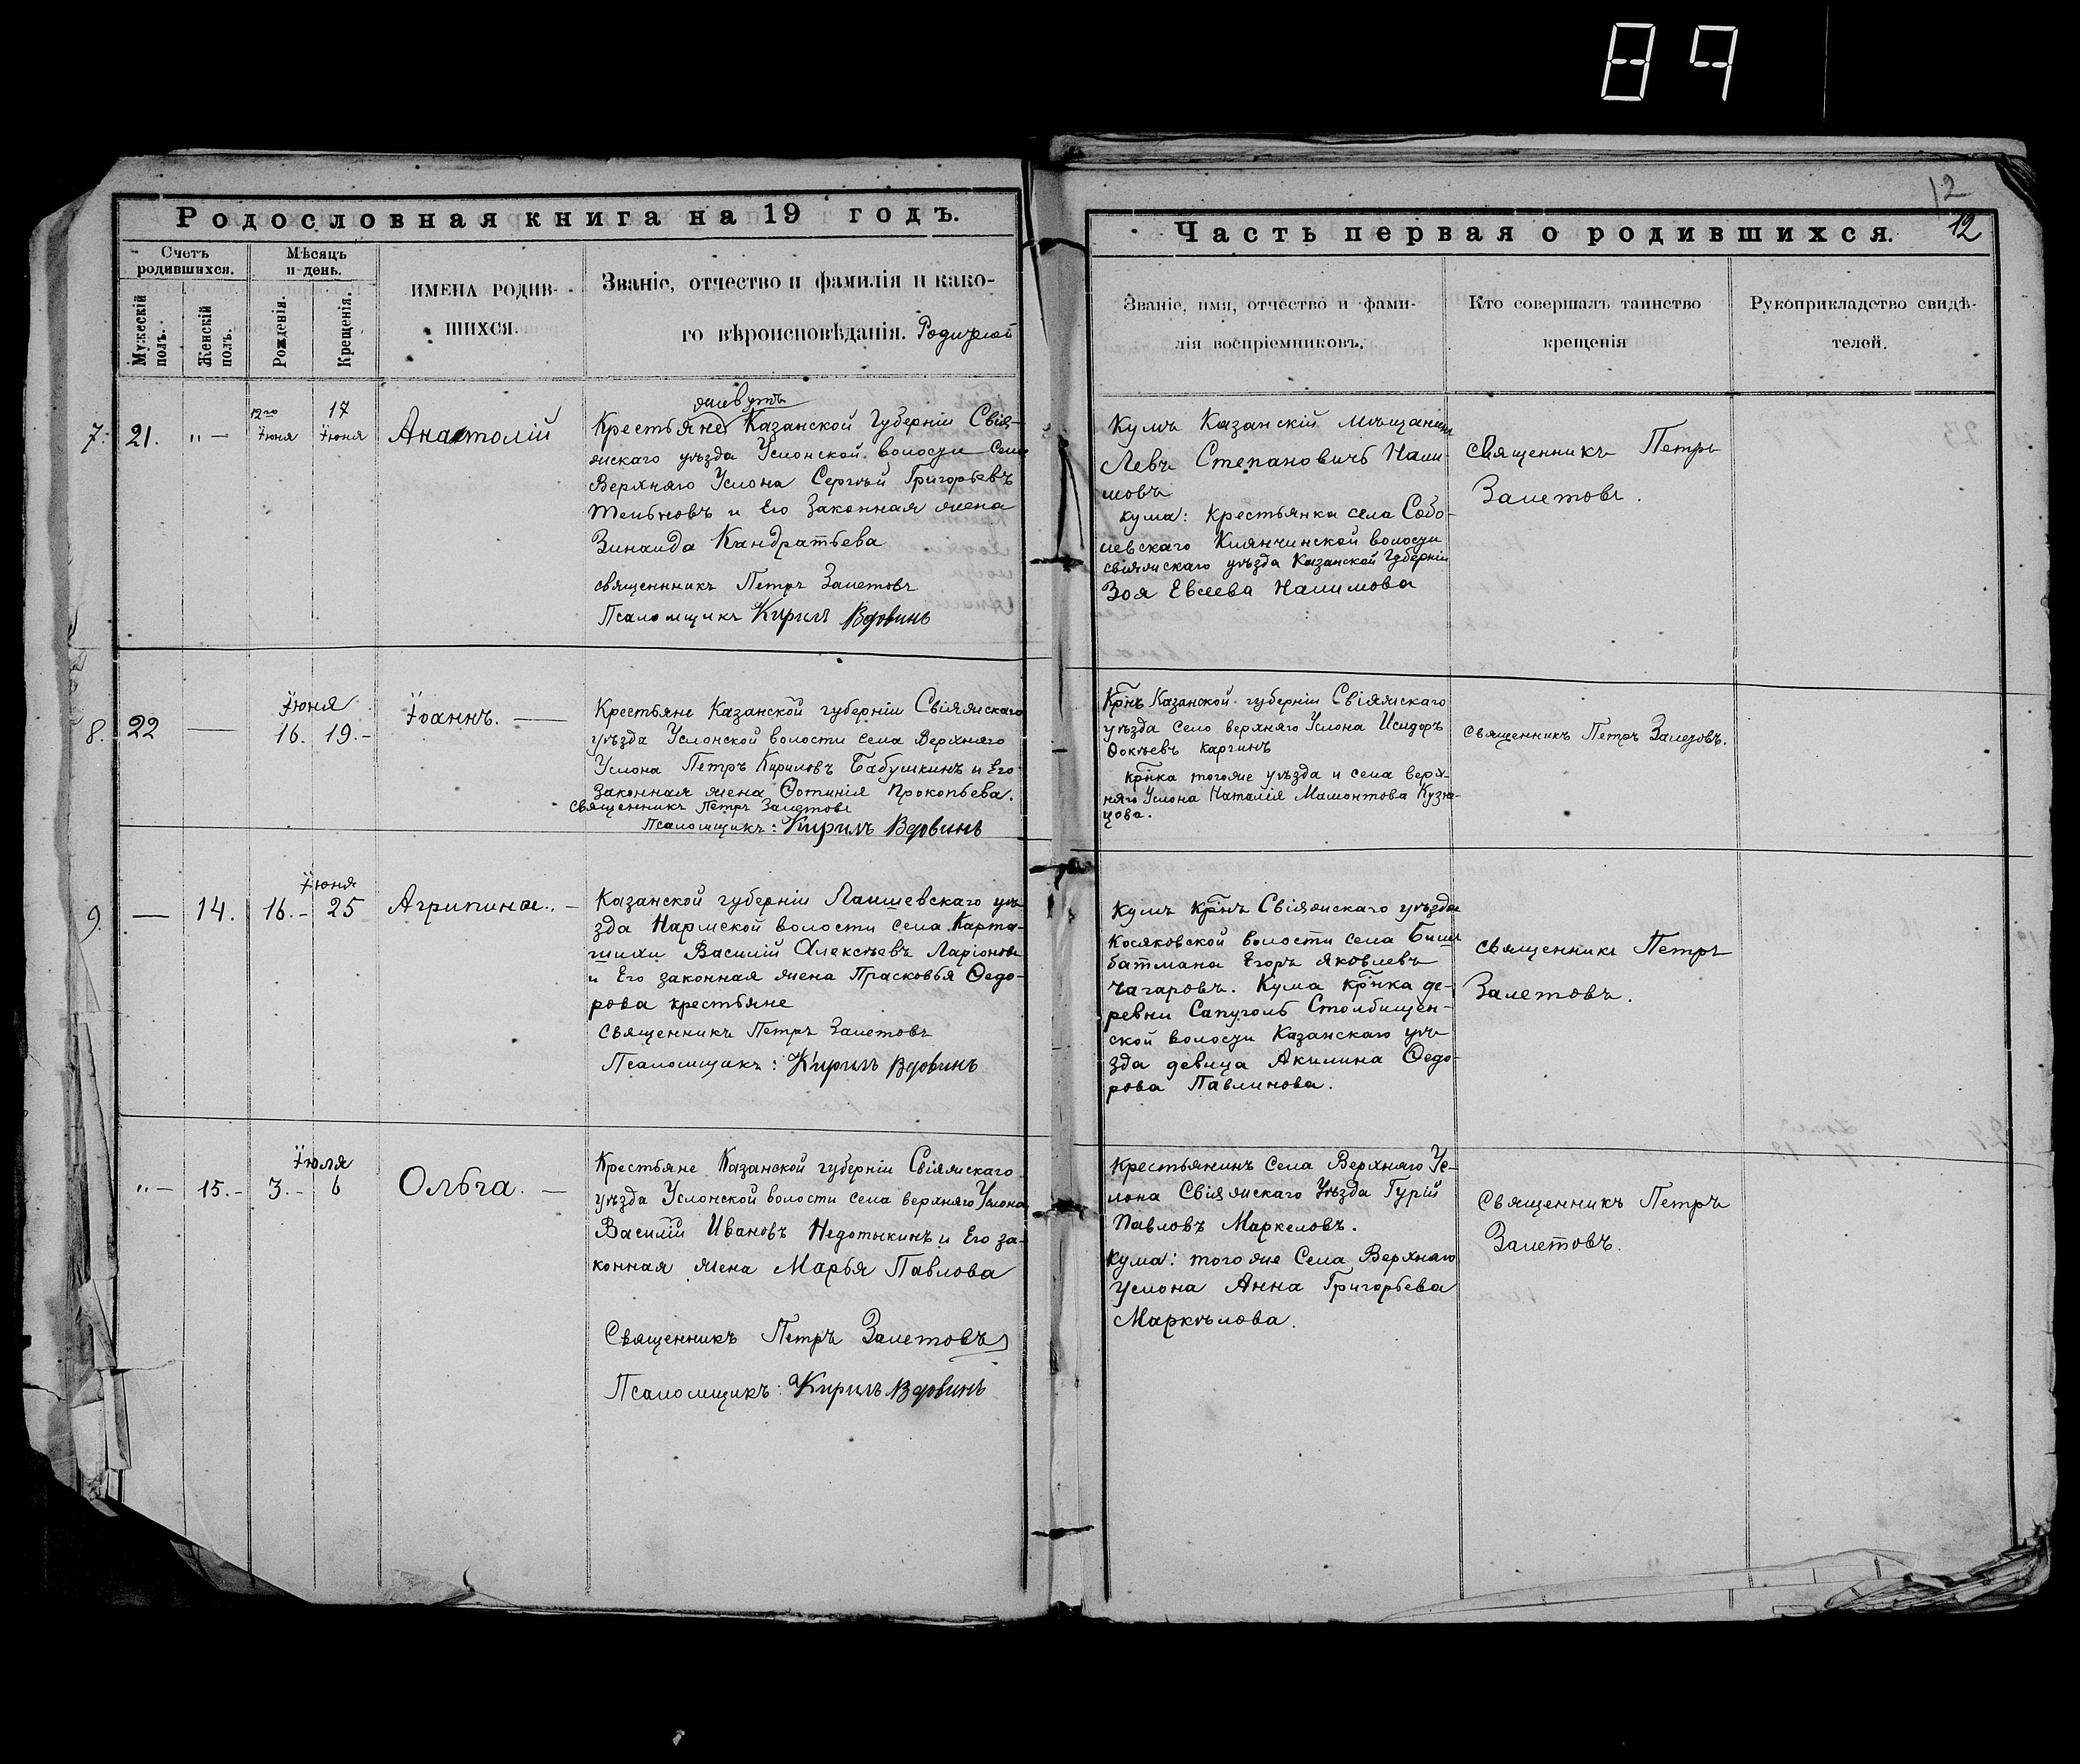 89
12
Родословная книга на 19 годъ.
Счетъ родившихся.
Мужескій полъ.
Женскій полъ.
Мѣсяцъ и день.
Рожденія.
Крещенія.
ИМЕНА РОДИВ-
ШИХСЯ.
Званіе, отчество и фамилія и како-
го вѣроисповѣданія. Родителей
7. 21. „ — 12го Іюня 17 Іюня Анатолій
живутъ
Крестьяне Казанской Губерніи Свія-
жскаго уѣзда Услонской волости Села
Верхняго Услона Сергѣй Григорьевъ
и Его Законная жена
Зинаида Кандратьева
священникъ Петръ Залетовъ
Псаломщикъ Кирилъ Вдовинъ
8. 22 — Іюня 16. 19. - Іоаннъ. —
Крестьяне Казанской губерніи Свіяжскаго
уѣзда Услонской волости села Верхняго
Услона Петръ Кириловъ Бабушкинъ и Его
Законная жена Фотинія Прокопьева.
Священникъ Петръ Залетовъ
Псаломщикъ: Кирилъ Вдовинъ
9. — 14. Іюня 16. - 25 Агрипина. —
Казанской губерніи Лаишевскаго уѣ-
зда Нармской волости села Карта-
шихи Василій Алексѣевъ Ларіоновъ
и Его законная жена Прасковья Ѳедо-
рова крестьяне
Священникъ Петръ Залетовъ
Псаломщикъ: Кирилъ Вдовинъ
„ — 15. - Іюля 3. - 6 Ольга. —
Крестьяне Казанской губерніи Свіяжскаго
уѣзда Услонской волости села верхняго Услона
Василій Ивановъ Недотыкинъ и Его за-
конная жена Марья Павлова
Священникъ Петръ Залетовъ
Псаломщикъ: Кирилъ Вдовинъ
Часть первая о родившихся. 12
Званіе, имя, отчество и фами-
лія воспріемниковъ.
Кто совершалъ таинство
крещенія
Рукоприкладство свидѣ-
телей.
Кумъ Казанскій мѣщанинъ
Левъ Степановичъ Нали-
мовъ
кума: крестьянка села Собо-
левскаго Клянчинской волости
свіяжскаго уѣзда Казанской Губерніи
Зоя Евсеева Налимова
Священникъ Петръ
Залетовъ.
Кр̄нъ Казанской губерніи Свіяжскаго
уѣзда Село верхняго Услона Исидоръ
Фокѣевъ Каргинъ
кр̄нка тогоже уѣзда и села верх-
няго Услона Наталія Мамонтова Кузне-
цова.
Священникъ Петръ Залетовъ.
Кумъ кр̄нъ Свіяжскаго уѣзда
Косяковской волости села Биш
батмана Егоръ Яковлевъ
Чагаровъ. Кума кр̄нка де-
ревни Сапуголь Столбищен-
ской волости Казанскаго уѣ-
зда девица Акилина Ѳедо-
рова Павлинова.
Священникъ Петръ
Залетовъ.
Крестьянинъ Села Верхняго Ус-
лона Свіяжскаго Уѣзда Гурій
Павловъ Маркеловъ.
кума: того же Села Верхняго
Услона Анна Григорьева
Маркѣлова.
Священникъ Петръ
Залетовъ.